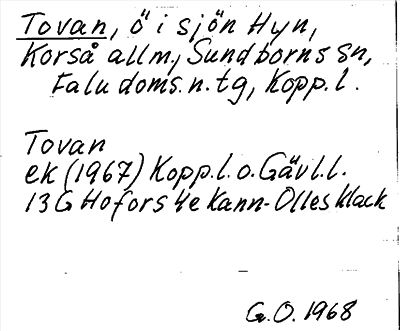 Tovan, ö i sjön Hyn,
Korså allm., Sundborns sn,
Falu doms.n.tg, Kopp.l.
Tovan
ek (1967) Kopp.l.o.Gävl.l.
13G Hofors 4e Kann-Olles klack
G.O. 1968